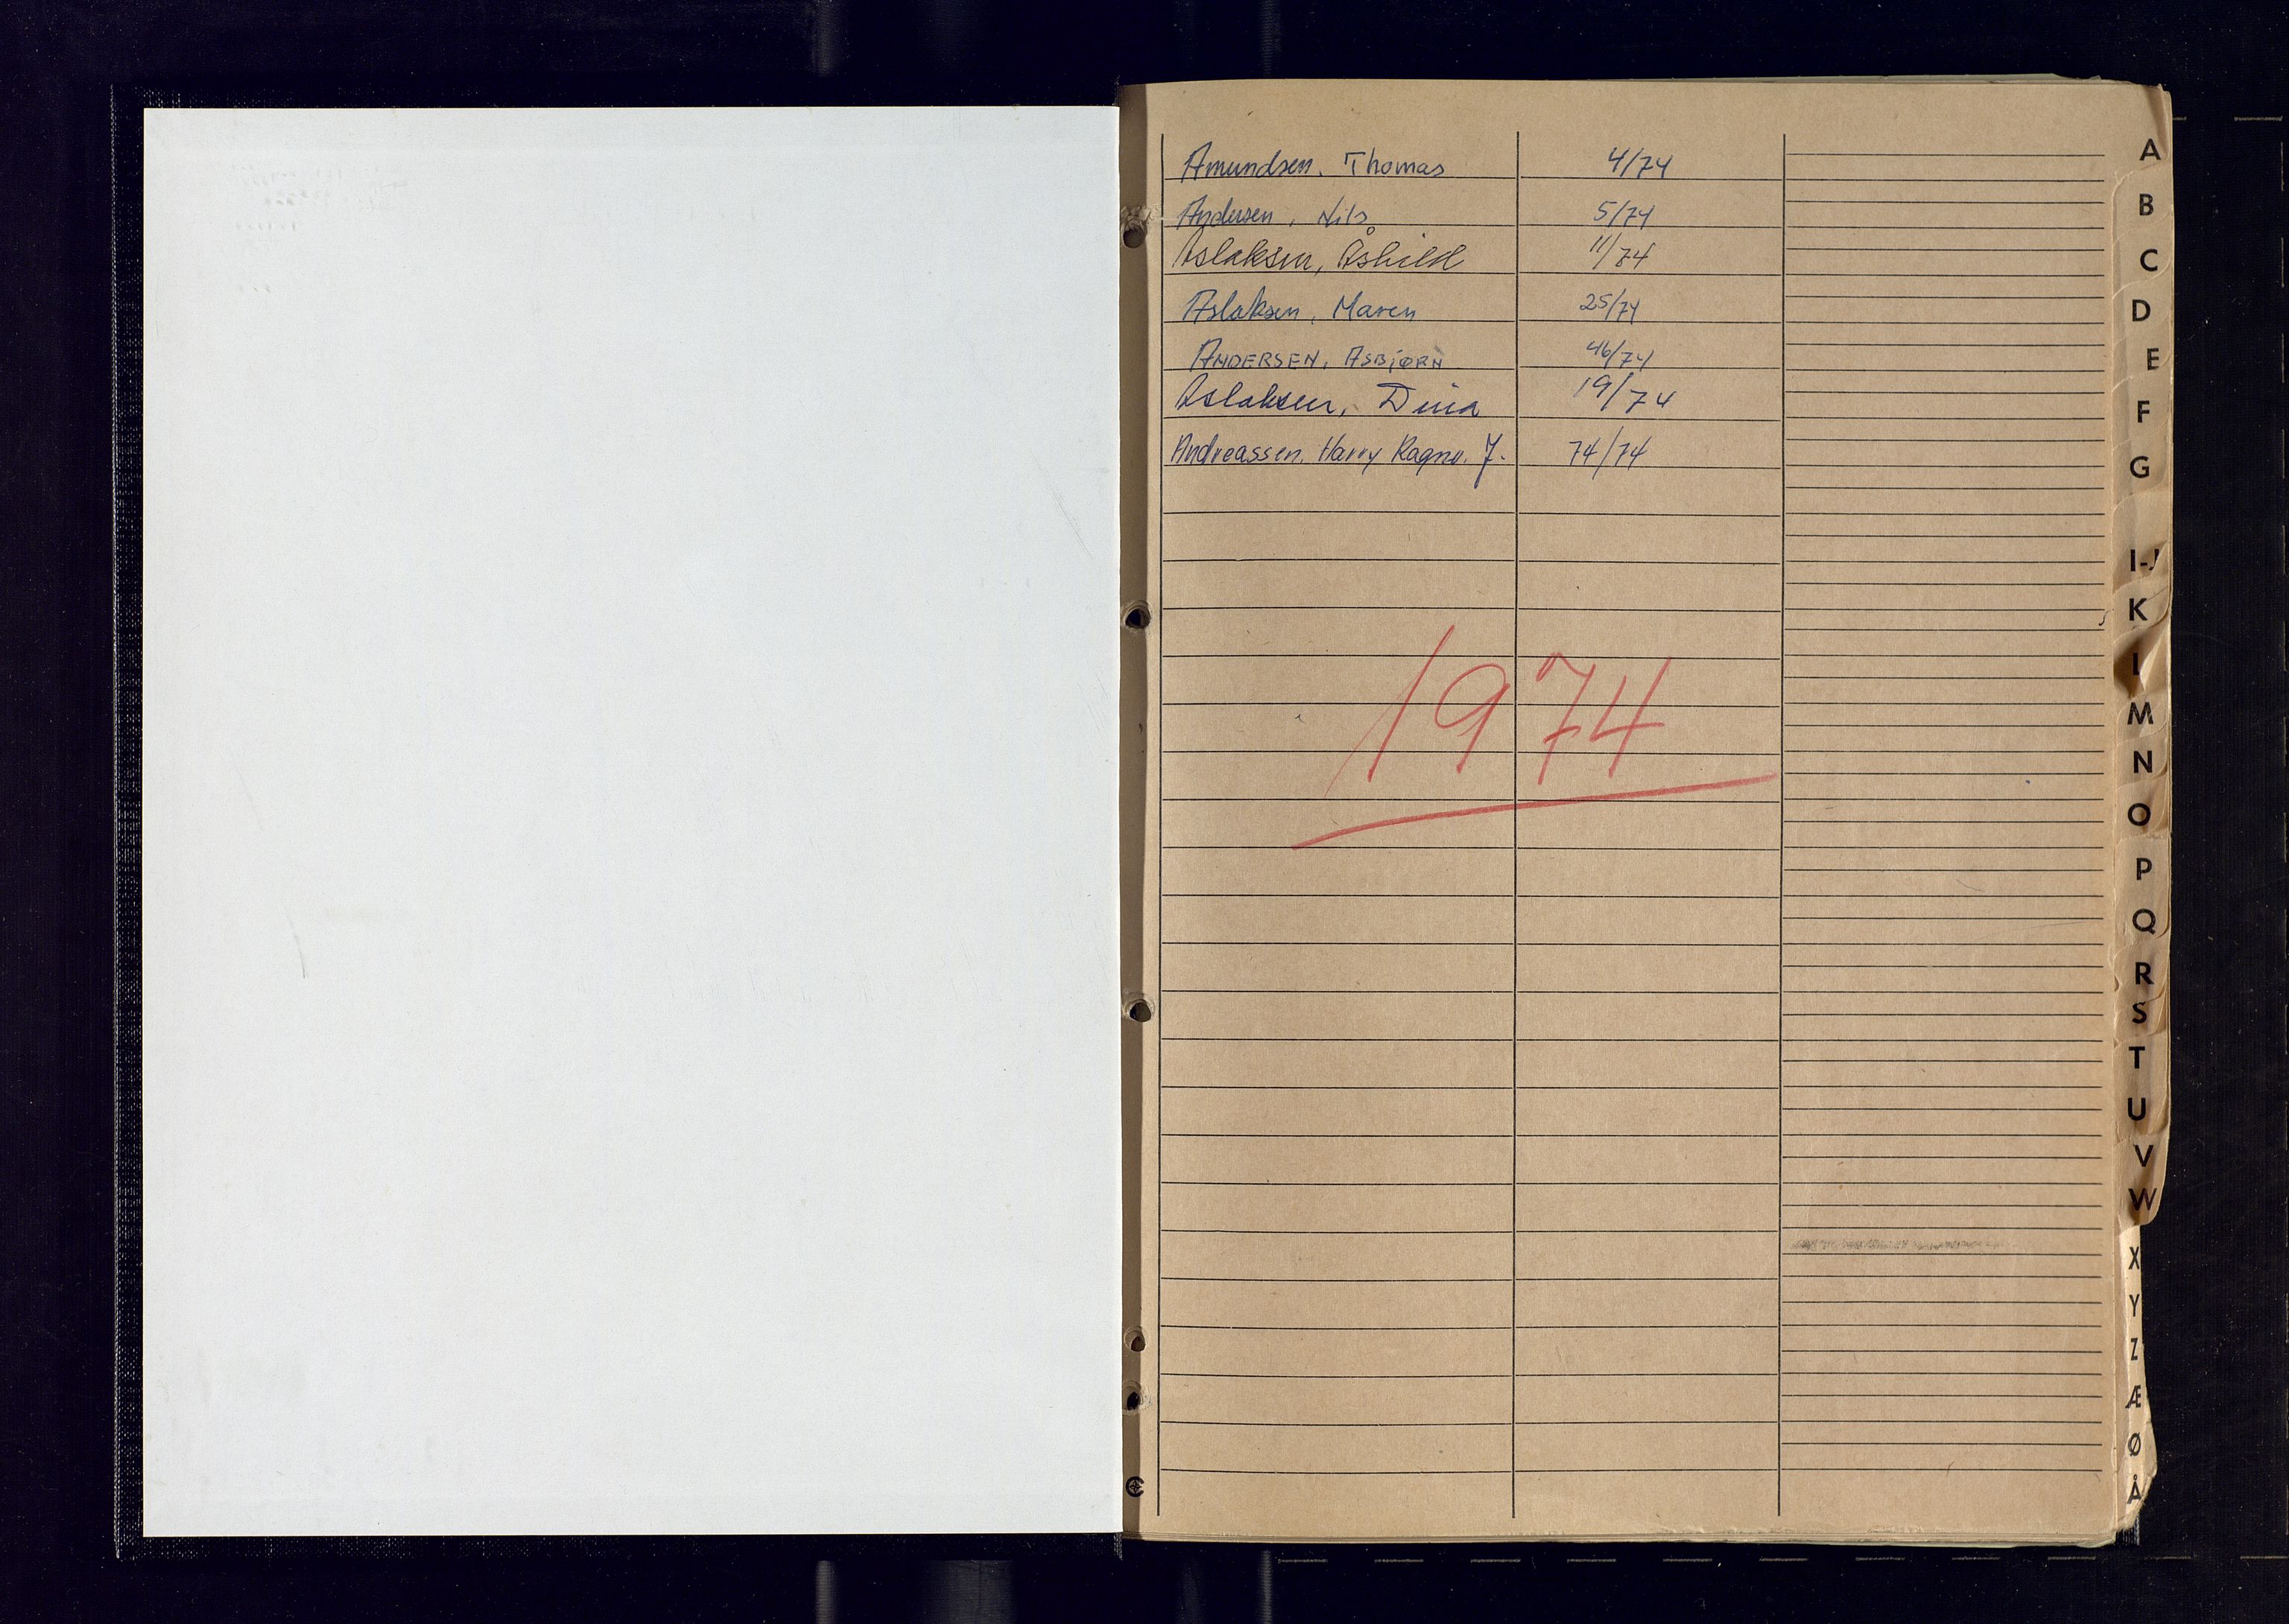 Amundsen, Thomas 4/74
Andersen, Nils 5/74
Aslaksen, Åshild 11/74
Aslaksen, Maren 25/74
ANDERSEN, ASBJØRN 46/74
Aslaksen, Dina 19/74
Andreassen, Harry Ragnv. J. 74/74
1974
A
B
C
D
E
F
G
I-J
K
L
M
N
O
P
Q
R
S
T
U
V
W
X
Y
Z
Æ
Ø
Å